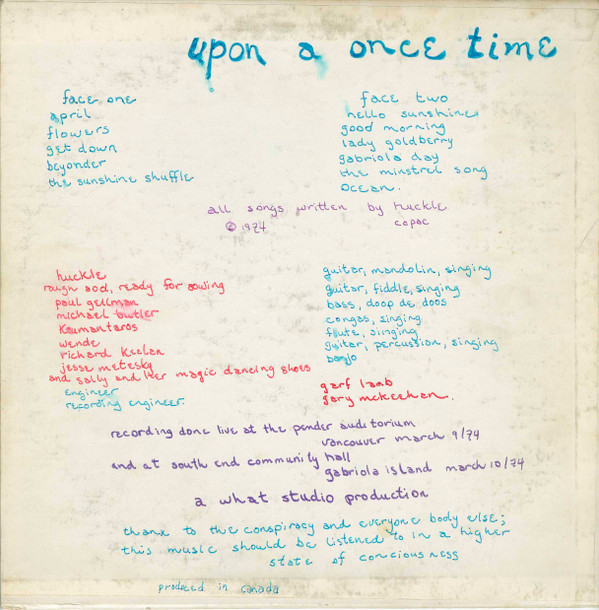 upon a once time
face one
april
flowers
get down
beyonder
the sunshine shuffle
face two
hello sunshine
good morning
lady goldberry
gabriola day
the minstrel song
ocean.
all songs written by huckle
© 1974 capac
huckle
rough sod, ready for sowing
paul gellman
michael butler
Kaumantaros
wende
richard Keelan
jesse metesky
and sally and her magic dancing shoes
guitar, mandolin, singing
guitar, fiddle, singing
bass, doop de doos
congas, singing
flute, singing
guitar, percussion, singing
banjo
engineer garf lamb
recording engineer. gary mckeehan.
recording done live at the pender auditorium
vancouver march 9/74
and at south end community hall
gabriola island march 10/74
a what studio production
thanx to the conspiracy and everyone body else;
this music should be listened to in a higher
state of conciousness
produced in canada